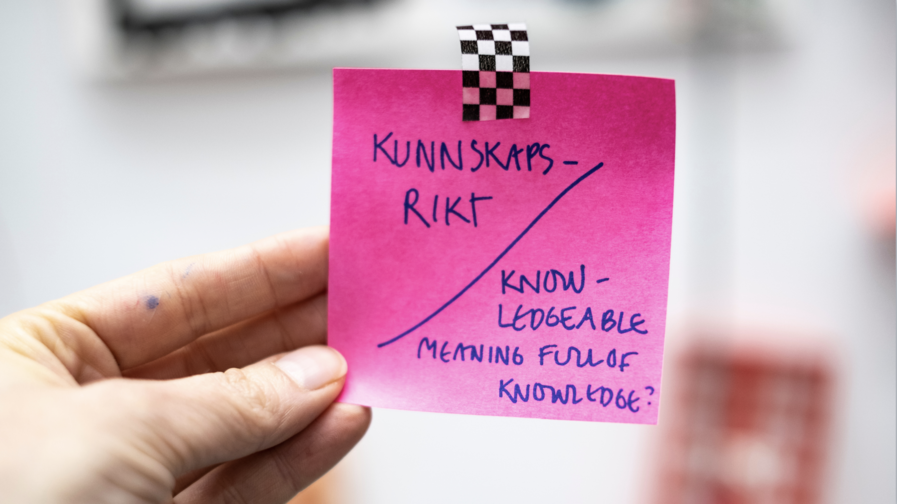 KUNNSKAPS-
RIKT
KNOW-
LEDGEABLE
MEANING FULL OF
KNOWLEDGE?